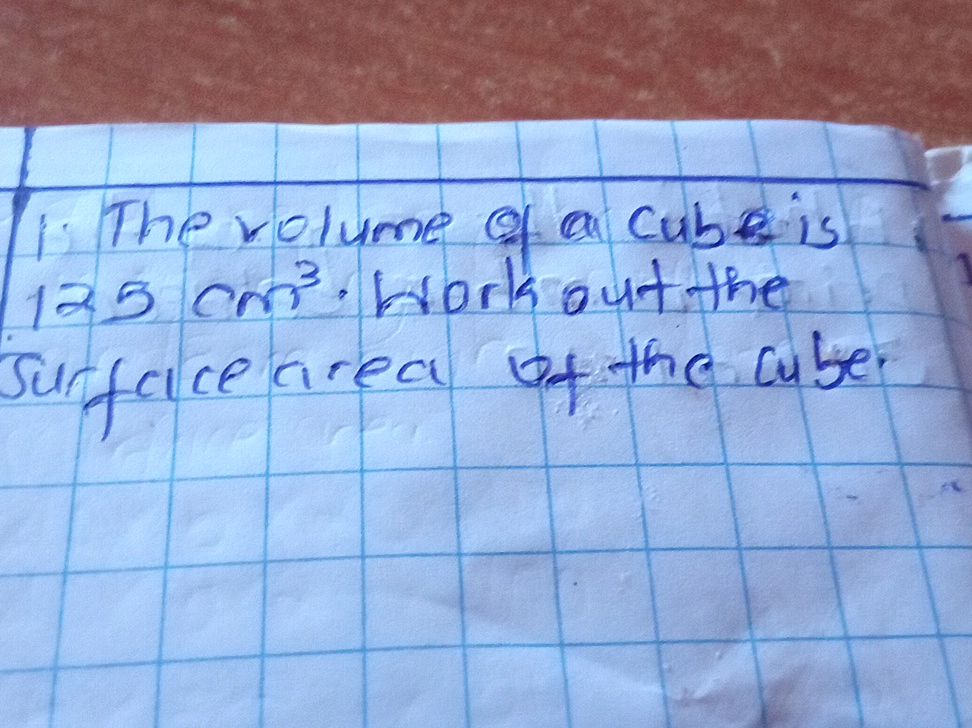 1. The volume of a cube is
125 cm³. Work out the
surface area of the cube.